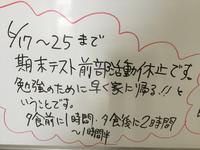 6/17～25まで
期末テスト前部活動休止です。
勉強のために早く家に帰る!!と
いうことです。
夕食前に1時間・夕食後に2時間
～1時間半